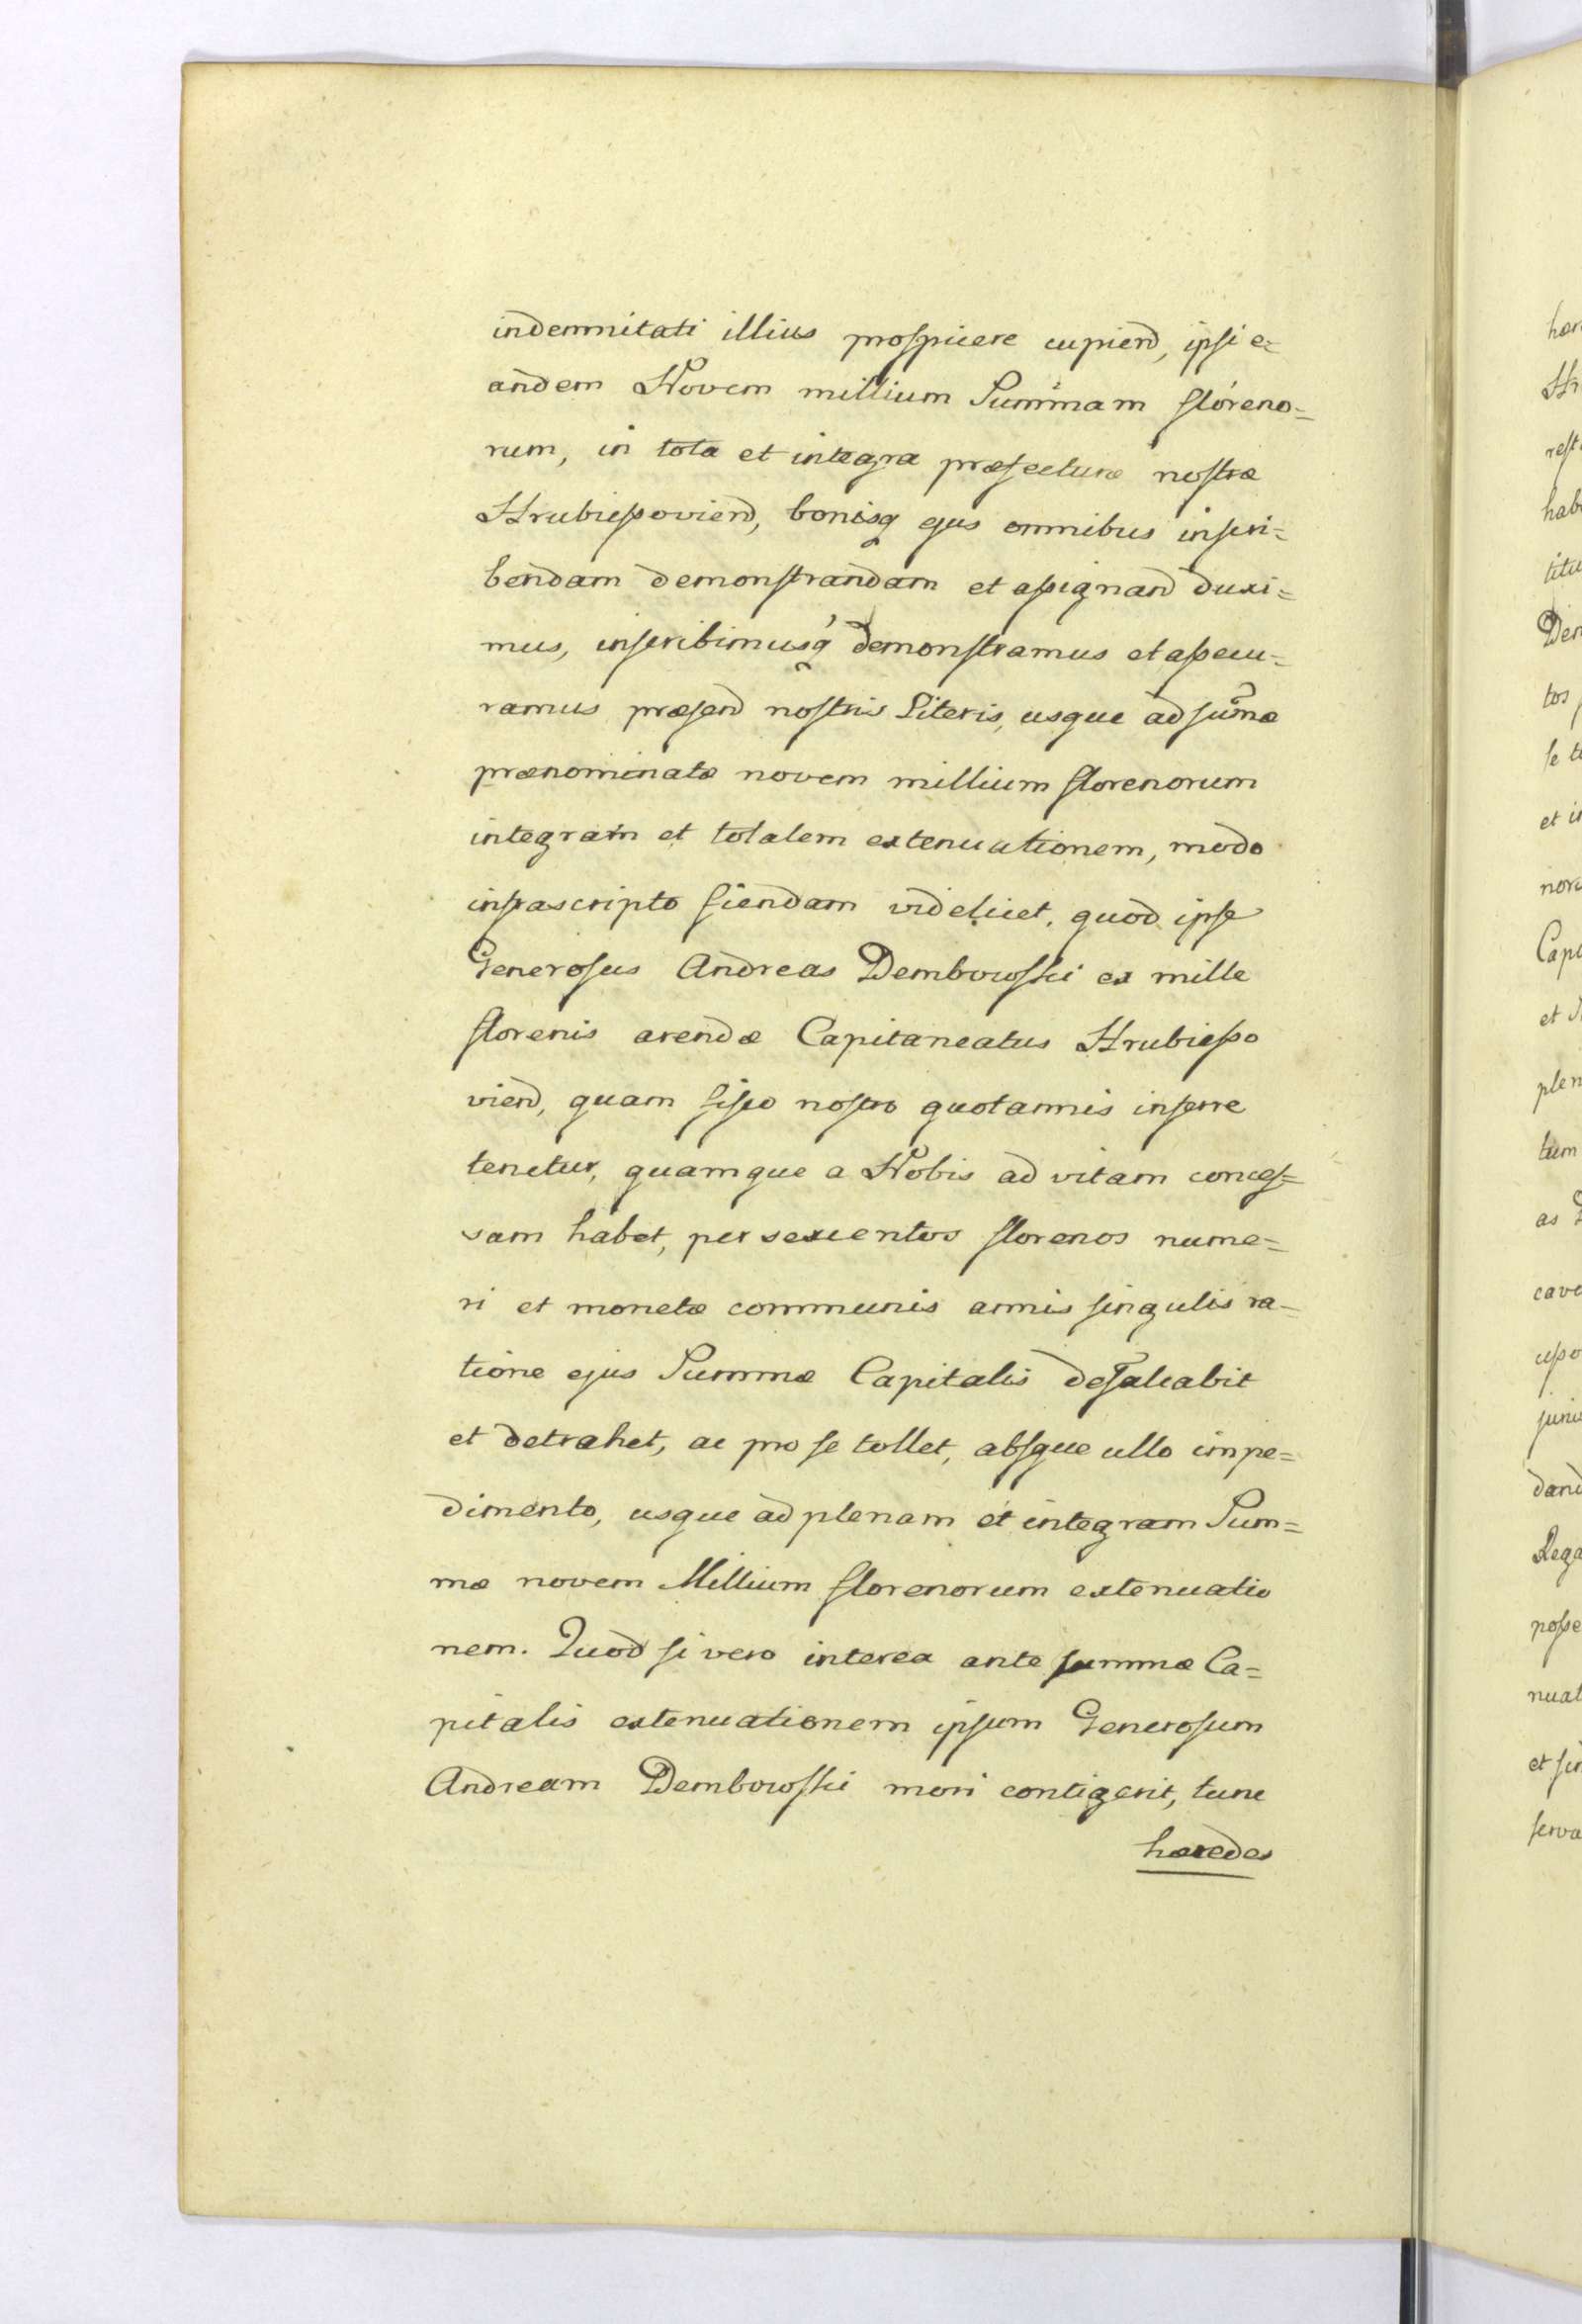 indemnitati illius prospicere cupiend, ipsi e=
andem Novem millium Summam floreno=
rum, in tota et integra præfecturæ nostræ
Hrubiessoviend, bonisq ejus omnibus inscri=
bendam demonstrandam et assignand duxi=
mus, inscribimusq demonstramus et assecu=
ramus præsend nostris Literis, usque ad sumæ
prænominatæ novem millium florenorum
integram et totalem extenuationem, modo
infrascripto fiendam videlicet, quod ipse
Generosus Andreas Dembowski ex mille
florenis arendæ Capitaneatus Hrubiesso
viend, quam fisco nostro quotannis inferre
tenetur, quamque a Nobis ad vitam conces=
sam habet, per sexcentos florenos nume=
ri et monetæ communis annis singulis ra=
tione ejus Summæ Capitalis defalcabit
et detrahet, ac pro se tollet, absque ullo impe=
dimento, usque ad plenam et integram Sum=
mæ novem Millium florenorum extenuatio
nem. Quod si vero interea ante summæ Ca=
pitalis extenuationem ipsum Generosum
Andream Dembowski mori contigerit, tunc
hæredes